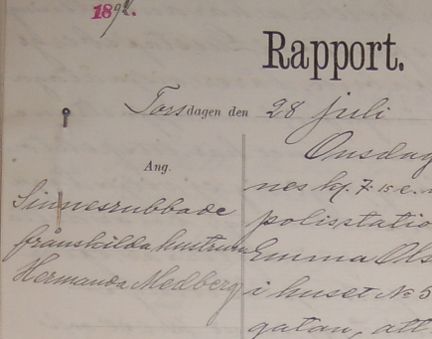 1892.
Rapport.
Torsdagen den 28 juli
Ang.
Sinnesrubbade
frånskilda hustrun
Hermanda Medberg
Onsdag
nes kl. 7.15 e.m
polisstatio
Emma Ols
i huset No 5
gatan, att